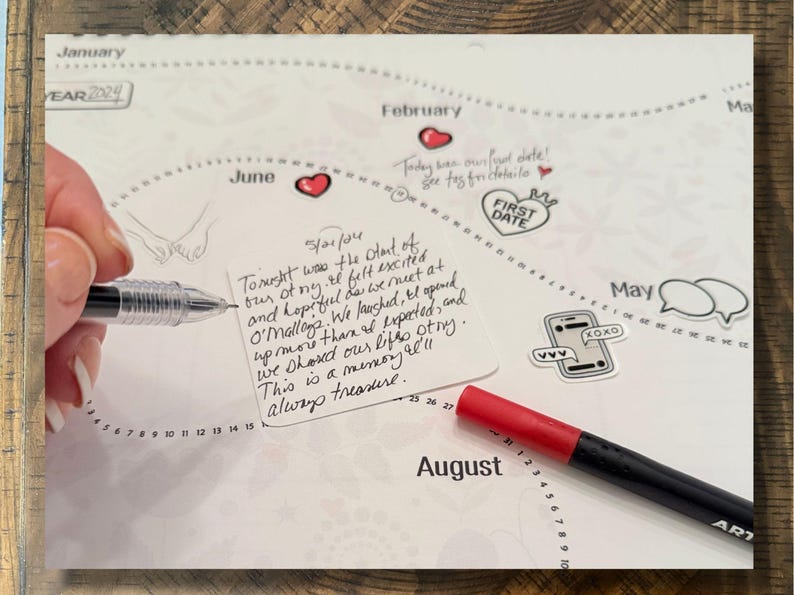 January
YEAR 2024
February
Ma
Today was our first date!
see tag for details
June
FIRST
DATE
5/21/24
Tonight was the start of
our story. I felt excited
and hopeful as we meet at
O'Malleys. We laughed, I opened
up more than I expected, and
we shared our lifes story.
This is a memory I'll
always treasure.
May
XOXO
VVV
25 26 27
5 6 7 8 9 10 11 12 13 14 15
31 1 2 3 4 5 6 7 8 9 10
August
ART